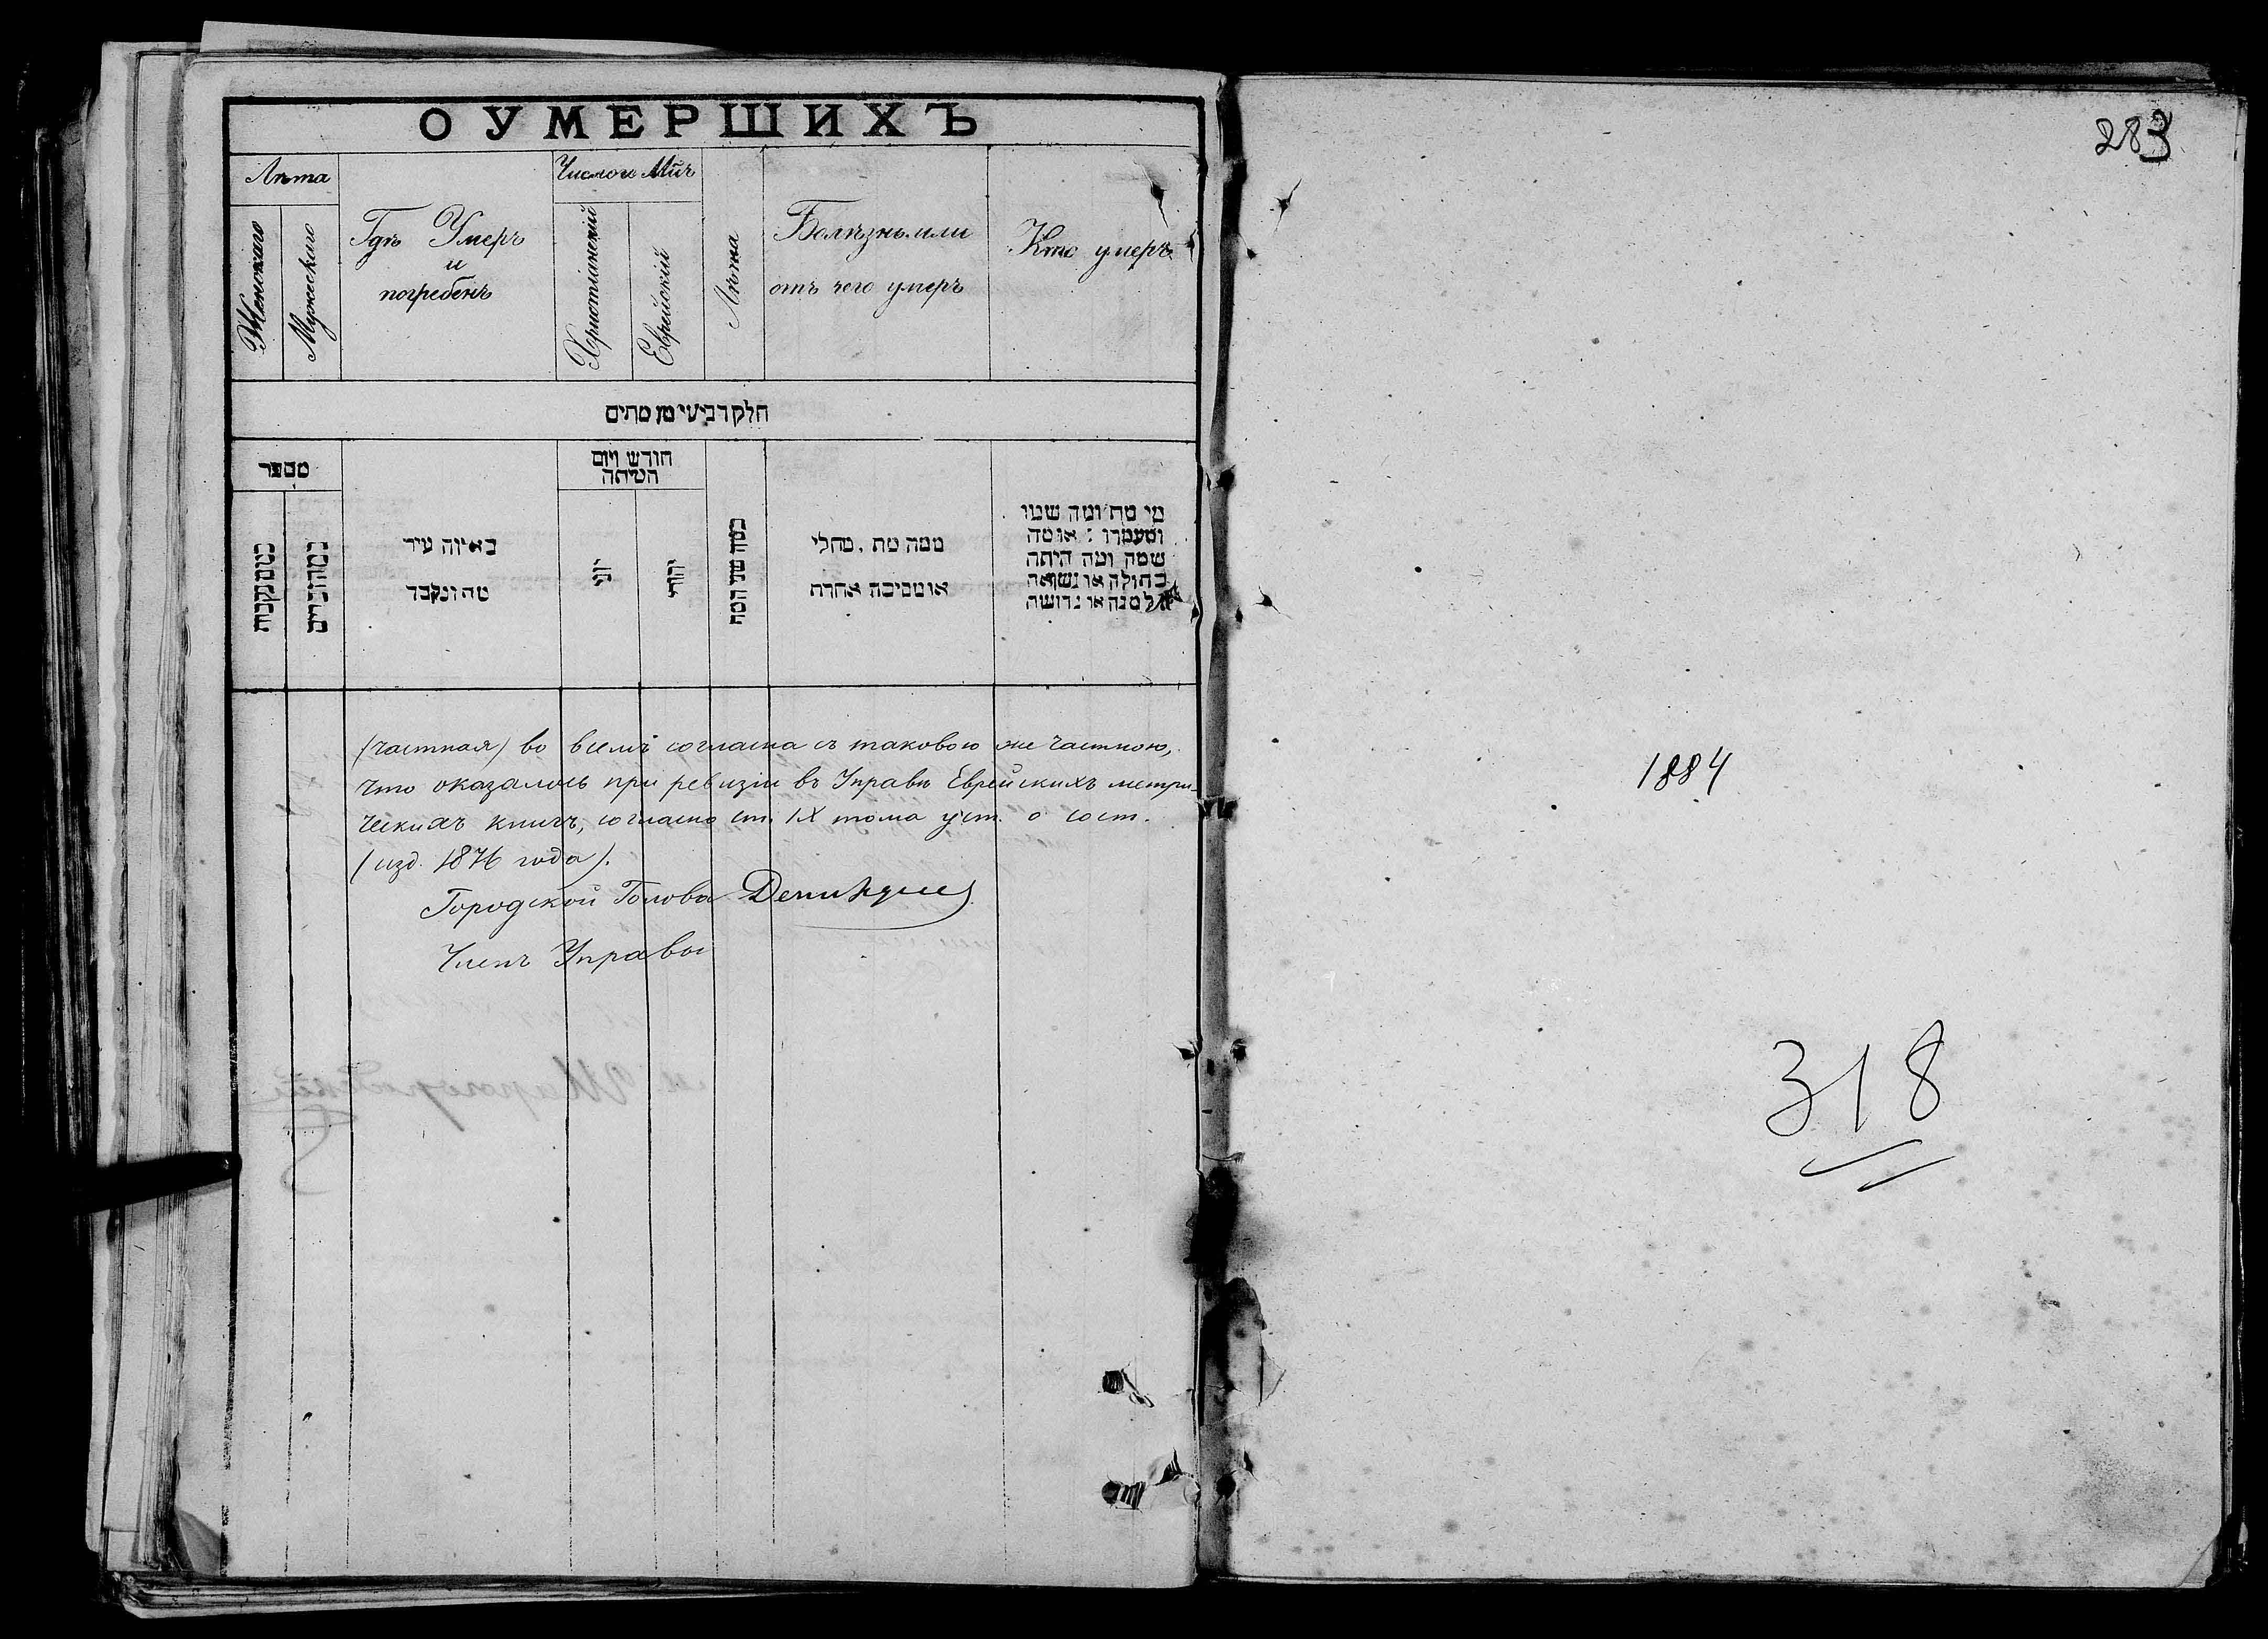 О УМЕРШИХЪ
Лѣта
Женскаго
Мужескаго
Гдѣ Умеръ
и
погребенъ
Число и Мц҃ъ
Христіанскій
Еврейскій
Лѣта
Болѣзнь или
отъ чего умеръ
Кто умеръ
חלק רביעי מן מתים
מספר
כמה נקבות
כמה זכרים
באיזה עיר
מת ונקבר
חודש ויום
המיתה
יוני
יהודי
כמה שני המת
ממה מת, מחלי
או מסיבה אחרת
מי מת ומה שמו
ומעמדו : או מה
שמה ומה היתה
בתולה או נשואה
אלמנה או גרושה
(частная) во всемъ согласна съ таковою же частною,
что оказалось при ревизіи въ Управѣ Еврейскихъ метри-
ческихъ книгъ, согласно ст. IX тома уст. о сост.
(изд. 1876 года).
Городской Голова
Членъ Управы
283
1884
318